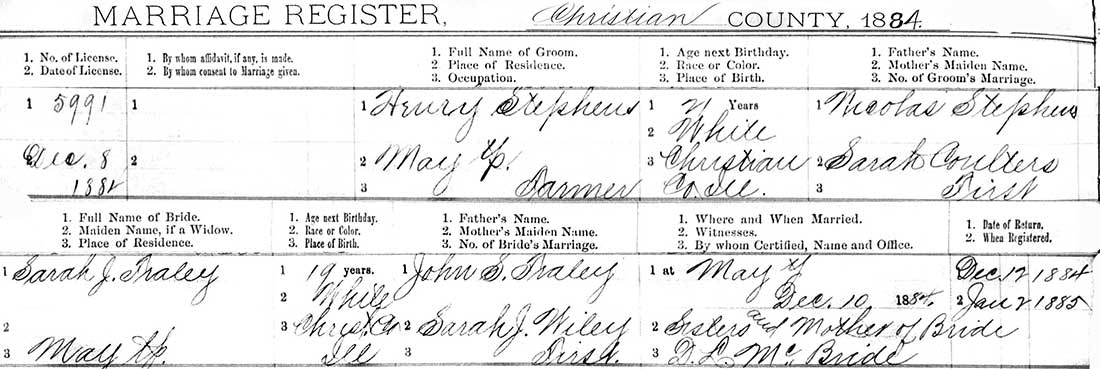 MARRIAGE REGISTER, Christian COUNTY, 1884.
1. No. of License. 1. By whom affidavit, if any, is made. 1. Full Name of Groom. 1. Age next Birthday. 1. Father's Name.
2. Date of License. 2. By whom consent to Marriage given. 2. Place of Residence. 2. Race or Color. 2. Mother's Maiden Name.
3. Occupation. 3. Place of Birth. 3. No. of Groom's Marriage.
1 5991 1 1 Henry Stephens 1 21 Years 1 Nicolas Stephens
2 White
2 Dec. 8 2 2 May tp. 3 Christian 2 Sarah Coulters
1884 3 Farmer Co. Ill. 3 First
1. Full Name of Bride. 1. Age next Birthday. 1. Father's Name. 1. Where and When Married. 1. Date of Return.
2. Maiden Name, if a Widow. 2. Race or Color. 2. Mother's Maiden Name. 2. Witnesses. 2. When Registered.
3. Place of Residence. 3. Place of Birth. 3. No. of Bride's Marriage. 3. By whom Certified, Name and Office.
1 Sarah J. Fraley 1 19 years. 1 John S. Fraley 1 at May Dec. 12 1884
2 White Dec. 10 1884. 2 Jan 2 1885
2 3 Christ. Co 2 Sarah J. Wiley 2 Sisters and Mother of Bride
3 May tp. Ill 3 First. 3 D. L. McBride